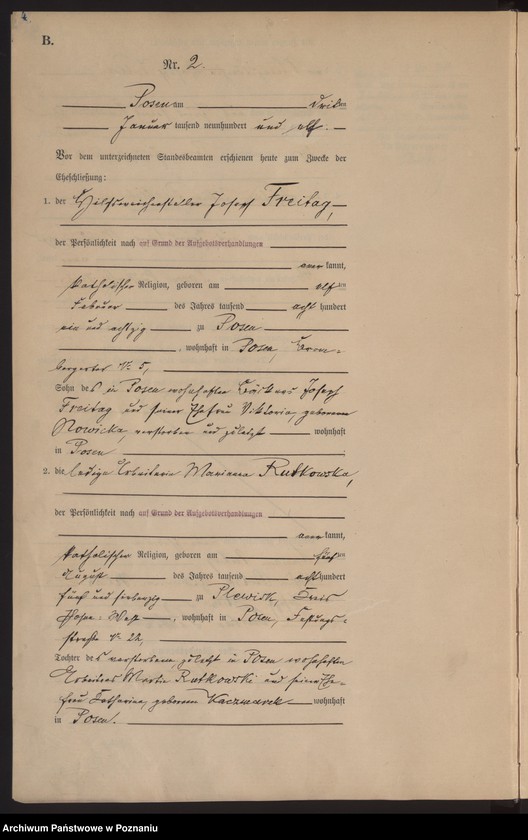 B.
Nr. 2.
Posen am dritten
Januar tausend neunhundert und elf.
Vor dem unterzeichneten Standesbeamten erschienen heute zum Zwecke der
Eheschließung:
1. der Hilfsweichensteller Josef Freitag,
der Persönlichkeit nach auf Grund der Aufgebotsverhandlungen
anerkannt,
katholischer Religion, geboren am elften
Februar des Jahres tausend acht hundert
ein und achtzig zu Posen
, wohnhaft in Posen, Brom-
bergerstr. No 5,
Sohn des in Posen wohnhaften Bäckers Josef
Freitag und seiner Ehefrau Viktoria, geborenen
Nowicka, verstorben und zuletzt wohnhaft
in Posen
2. die ledige Arbeiterin Marianna Rutkowska,
der Persönlichkeit nach auf Grund der Aufgebotsverhandlungen
anerkannt,
katholischer Religion, geboren am
August des Jahres tausend acht hundert
fünf und siebenzig zu Plewisk, Kreis
Posen-West, wohnhaft in Posen, Festungs-
straße No
Tochter des verstorbenen, zuletzt in Posen wohnhaften
Arbeiters Martin Rutkowski und seiner Ehe-
frau Katharina, geborenen Kaczmarek wohnhaft
in Posen.
Archiwum Państwowe w Poznaniu